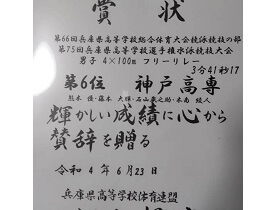 賞状
第66回兵庫県高等学校総合体育大会競泳競技の部
第75回兵庫県高等学校選手権水泳競技大会
男子 4×100m フリーリレー
3分41秒17
第6位 神戸高専
熊木 優・藤本 大輝・石山
輝かしい成績に心から
賛辞を贈る
令和4年6月23日
兵庫県高等学校体育連盟